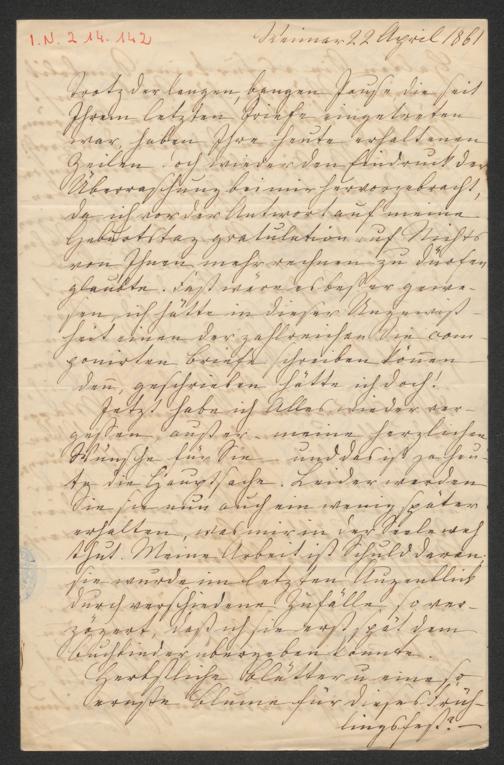 I.N. 214.142
Weimar 22 April 1861
Trotz der langen, bangen Pause die seit
Ihrem letzten Briefe eingetreten
war, haben Ihre heute erhaltenen
Zeilen doch wieder den Eindruck der
Überraschung bei mir hervorgebracht,
da ich vor der Antwort auf meine
Geburtstaggratulation auf Nichts
von Ihnen mehr rechnen zu dürfen
glaubte. Fast wäre es besser gewe-
sen, ich hätte in dieser Ungewiß-
heit einen der zahlreichen Sie com
ponirten Briefe schreiben können
denn, geschrieben hätte ich doch!
Jetzt habe ich Alles wieder ver-
gessen, außer meine herzlichen
Wünsche für Sie und das ist ja heu-
te die Hauptsache. Leider werden
Sie sie nun auch ein wenig später
erhalten, was mir in der Seele weh
thut. Meine Arbeit ist Schuld daran
sie wurde im letzten Augenblick
durch verschiedene Zufälle so ver-
zögert, daß ich sie erst spät dem
Buchbinder übergeben konnte.
Herbstliche Blätter u eine so
ernste Blume für dieses Früh-
lingsfest? —